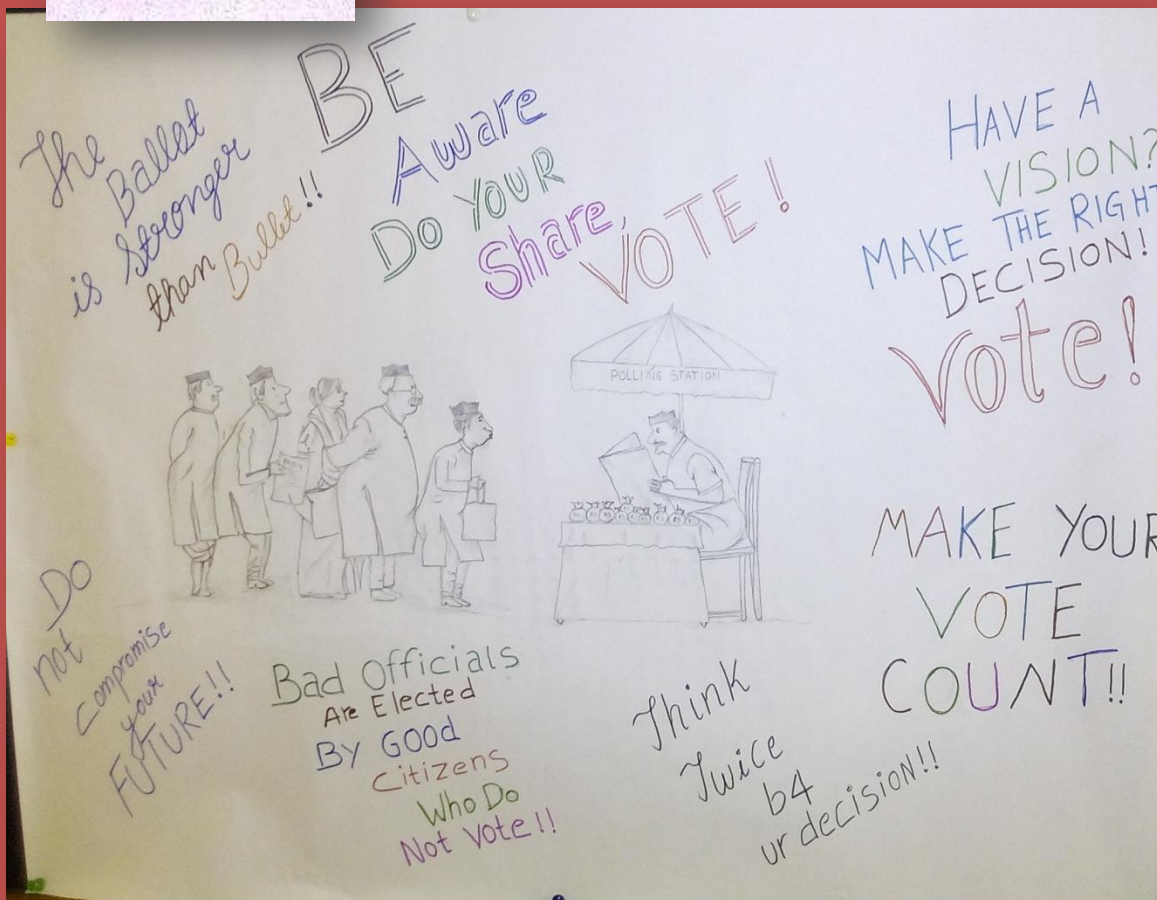 The
Ballot
is Stronger
than Bullet!!
BE
Aware
Do YOUR
Share,
VOTE!
HAVE A
VISION?
MAKE THE RIGHT
DECISION!
Vote!
POLLING STATION
DO
not
compromise
your
FUTURE!!
Bad Officials
Are Elected
By GOOD
Citizens
Who Do
Not Vote!!
Think
Twice
b4
ur decision!!
MAKE YOUR
VOTE
COUNT!!